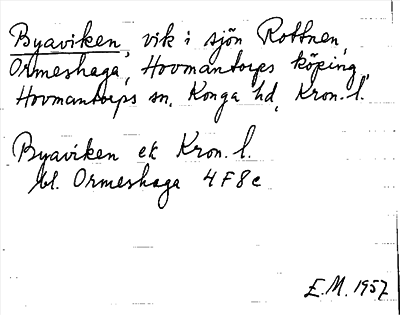 Byaviken, vik i sjön Rottnen,
Ormeshaga, Hovmantorps köping,
Hovmantorps sn, Konga hd, Kron. l.
Byaviken ek Kron. l.
bl. Ormeshaga 4F8c
E.M. 1957